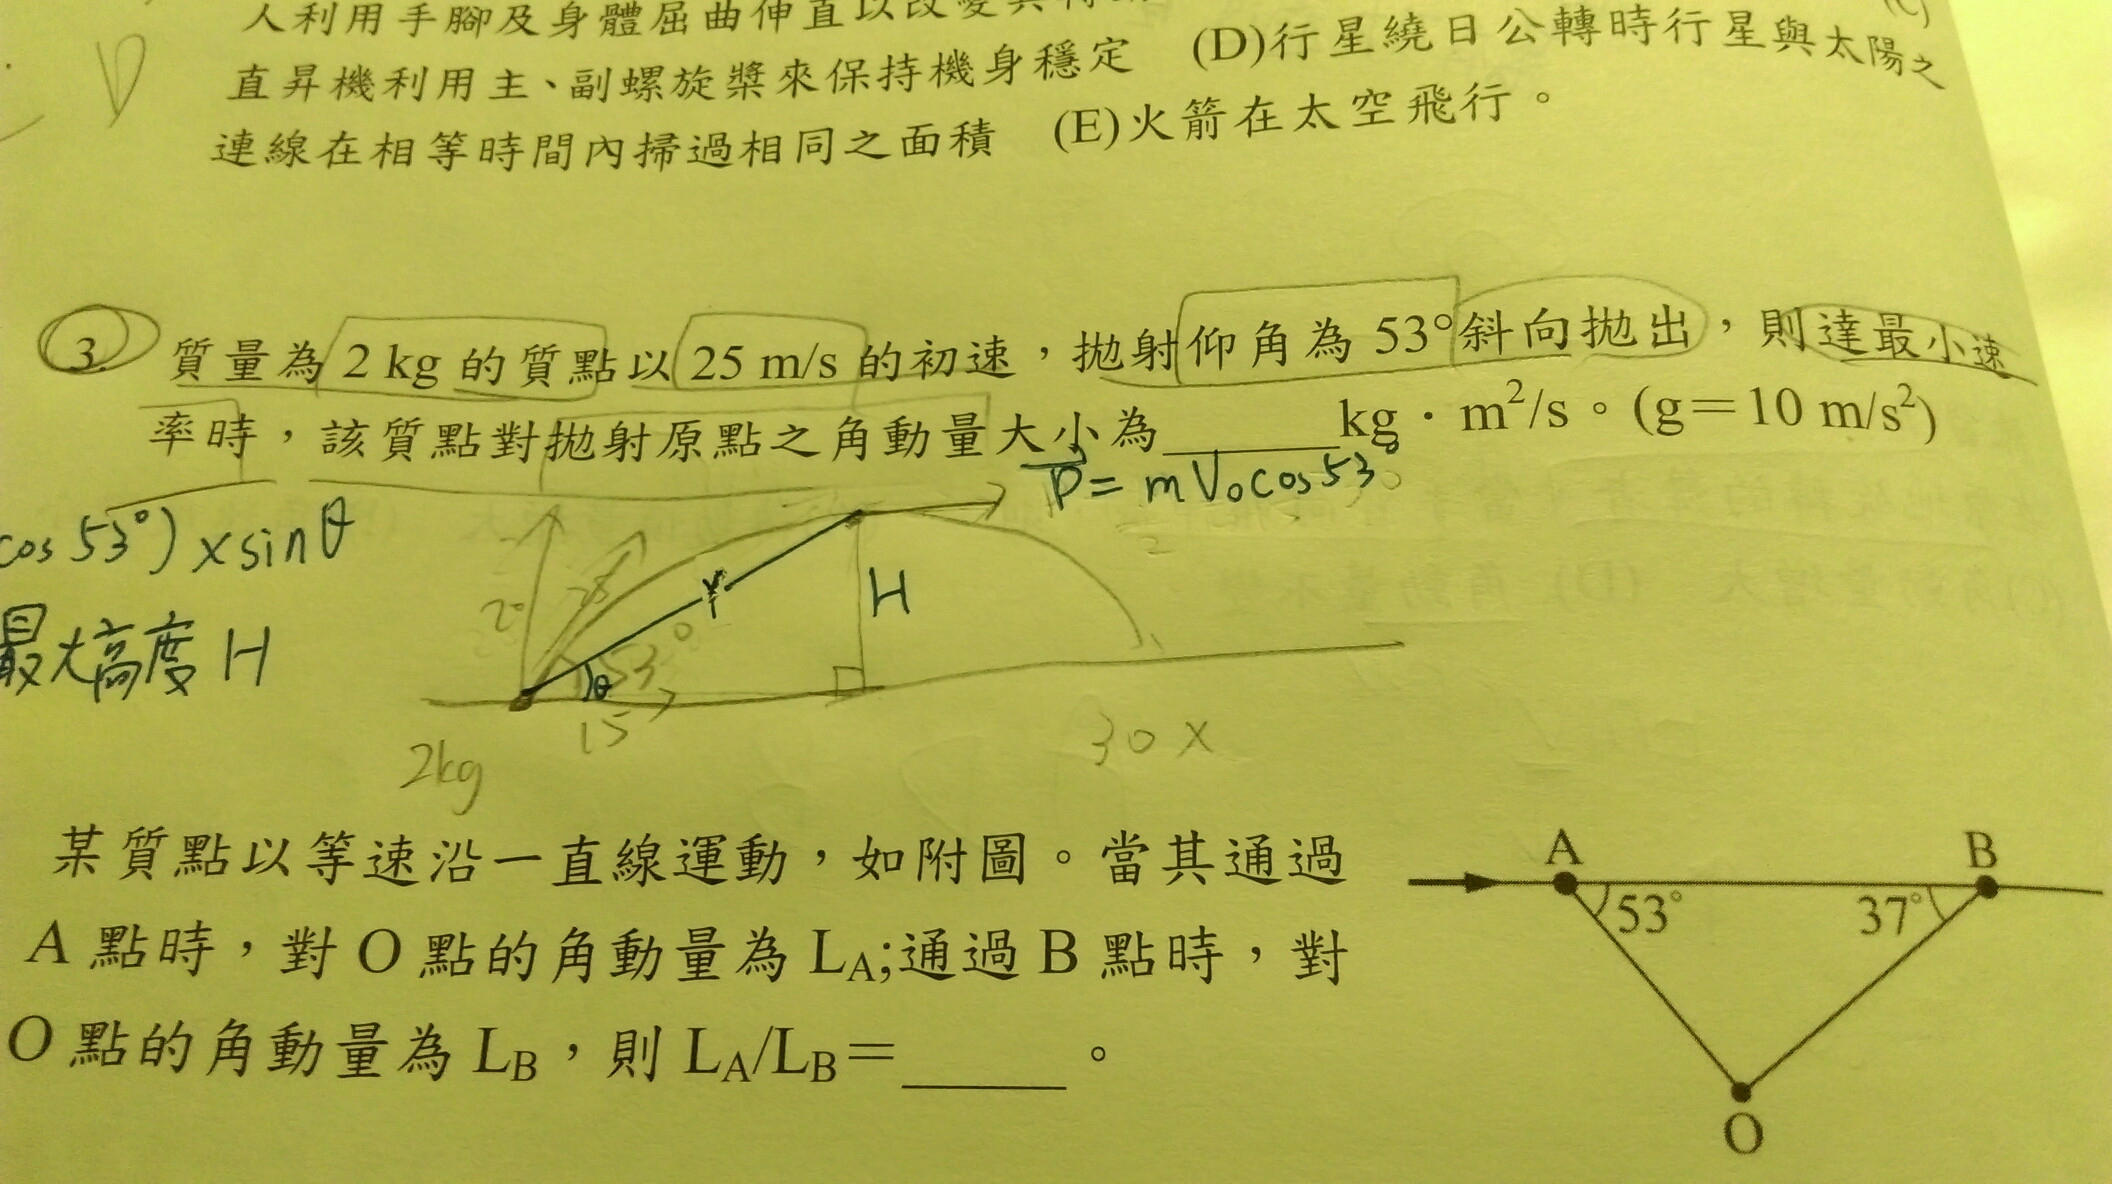 人利用手腳及身體屈曲伸直以改變其轉
(C)
直昇機利用主、副螺旋槳來保持機身穩定 (D)行星繞日公轉時行星與太陽之
連線在相等時間內掃過相同之面積 (E)火箭在太空飛行。
3. 質量為 2 kg 的質點以 25 m/s 的初速,拋射仰角為 53°斜向拋出,則達最小速
率時,該質點對拋射原點之角動量大小為______kg · m²/s。(g=10 m/s²)
P = mV₀cos53°
cos 53°) x sinθ
最大高度 H
r
H
20
25
53°
θ
15
2kg
30 x
某質點以等速沿一直線運動,如附圖。當其通過
A 點時,對 O 點的角動量為 L_A;通過 B 點時,對
O 點的角動量為 L_B,則 L_A/L_B=______。
A
B
53°
37°
O